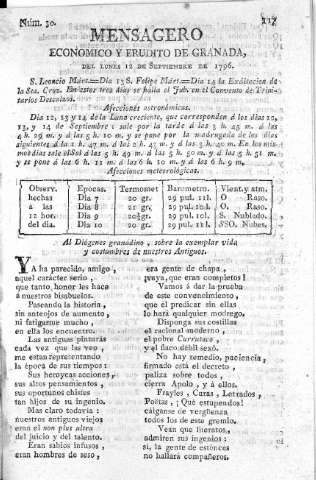 Núm. 30. 117
MENSAGERO
ECONOMICO Y ERUDITO DE GRANADA,
DEL LUNES 12 DE SEPTIEMBRE DE 1796.
S. Leoncio Márt.=Dia 13 S. Felipe Márt.=Dia 14 la Exâltacion de
la Sta. Cruz. En estos tres dias se halla el Jub. en el Convento de Trini-
tarios Descalzos.
Afecciones astronómicas.
Dia 12, 13 y 14 de la Luna creciente, que corresponden á los dias 12,
13, y 14 de Septiembre: sale por la tarde á las 3 h. 45 m. á las
4 h. 29 m. y á las 5 h. 10 m. y se pone por la madrugada de los dias
siguientes á la 1 h. 47 m. á las 2 h. 42 m. y á las 3 h. 40 m. En los mis-
mos dias sale el Sol á las 5 h. 49 m. á las 5 h. 50 m. y á las 5 h. 51 m.
y se pone á las 6 h. 11 m. á las 6 h. 10 m. y á las 6 h. 9 m.
Afecciones meteorológicas.
Observ. Epocas. Termomet Barometro. Vient. y atm.
hechas Dia 7 20 gr. 29 pul. 11l. O Raso.
á las Dia 8 21 gr. 29 pul. 11l. O. Raso.
12 hor. Dia 9 20½gr. 29 pul. 10l. S. Nublado.
del dia. Dia 10 20 gr. 29 pul. 11l. SSO. Nubes.
Al Diógenes granadino, sobre la exemplar vida
y costumbres de nuestros Antiguos.
YA ha parecido, amigo,
aquel carácter serio,
que tanto honor les hace
á nuestros bisabuelos.
Paseando la historia,
sin anteojos de aumento,
ni fatigarme mucho,
en ella los encuentro.
Las antiguas pinturas
cada vez que las veo,
me estan representando
la época de sus tiempos:
Sus heroycas acciones,
sus altos pensamientos,
sus oportunos chistes
tan hijos de su ingenio.
Mas claro todavia:
nuestros antiguos viejos
eran el non plus altra
del juicio y del talento.
Eran sabios infusos,
eran hombres de seso,
era gente de chapa,
¡vaya, que eran completos!
Vamos á dar la prueba
de este convencimiento,
que el predicar sin ellas
lo hará qualquier modrego.
Disponga sus costillas
el racional moderno,
el pobre Currutaco
y el flaco débil sexô.
No hay remedio, paciencia,
firmado está el decreto,
paliza sobre todos,
cierra Apolo, y á ellos.
Frayles, Curas, Letrados,
Poëtas, ¡Qué estupendos!
cáiganse de vergüenza
todos los de este gremio.
Vean que literatos,
admiren sus ingenios:
si, la gente de estónces
no hallará compañeros.